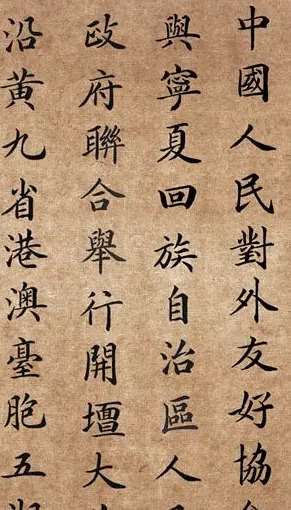 中國人民對外友好協
與寧夏回族自治區人
政府聯合舉行開壇大
沿黃九省港澳臺胞五